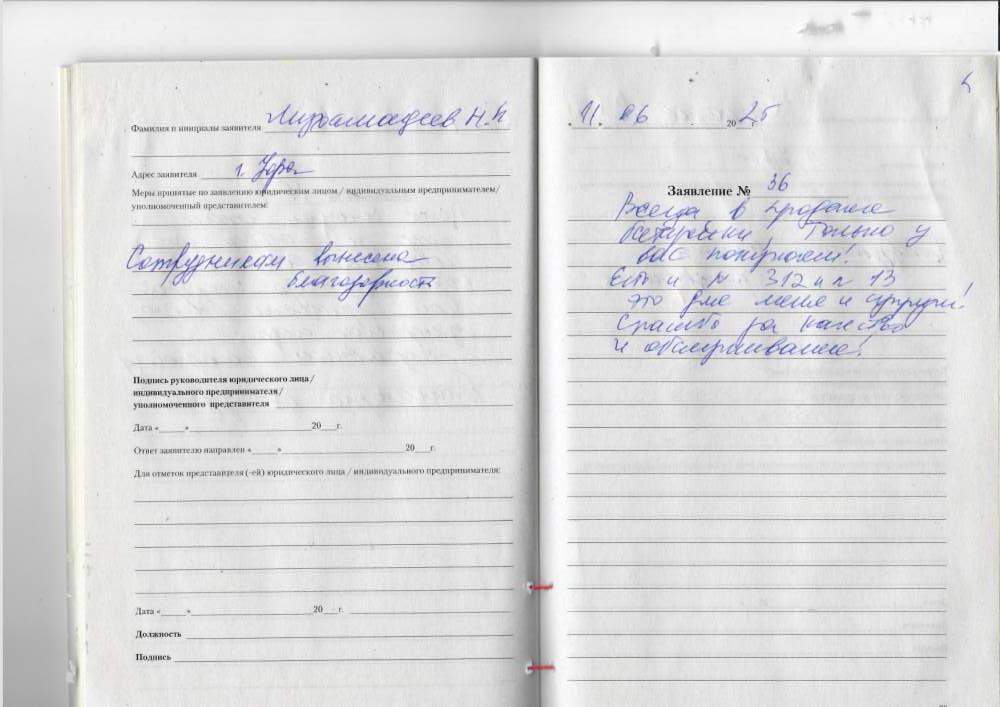 Фамилия и инициалы заявителя
Адрес заявителя г. Уфа
Меры принятые по заявлению юридическим лицом / индивидуальным предпринимателем/
уполномоченный представителем:
Сотрудникам вынесена
благодарность
Подпись руководителя юридического лица /
индивидуального предпринимателя /
уполномоченного представителя
Дата «____»____20___г.
Ответ заявителю направлен «____»____20___г.
Для отметок представителя (-ей) юридического лица / индивидуального предпринимателя:
Дата «____»____20___г.
Должность
Подпись
11. 06 2025
Заявление № 36
Всегда в продаже
батарейки, только у
вас покупаем!
Есть и 312 и 13
это уже мне и супруги!
Спасибо за качество
и обслуживание!